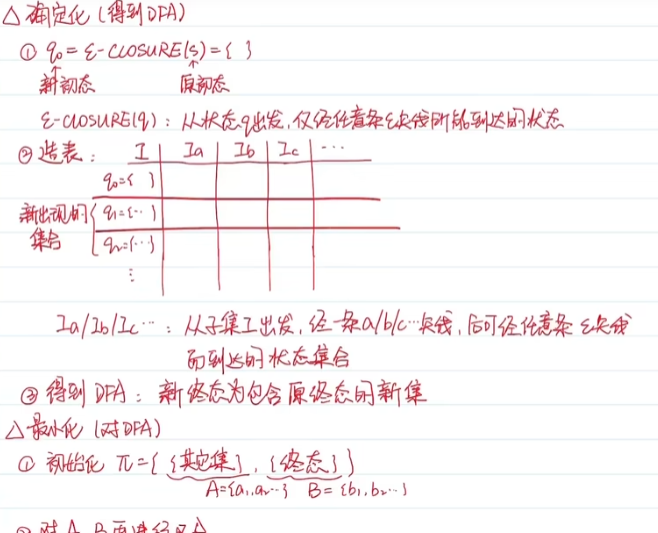 △ 确定化 (得到DFA)
① q₀ = ε-CLOSURE(s) = { }
新初态 原初态
ε-CLOSURE(q) : 从状态q出发, 仅经任意条ε矢线所能到达的状态
② 造表 : I Ia Ib Ic ⋯
q₀={ }
新出现的集合 q₁={⋯}
q₂={⋯}
⋮
Ia/Ib/Ic⋯ : 从子集I出发, 经一条a/b/c⋯矢线, 后可经任意条ε矢线
而到达的状态集合
③ 得到 DFA : 新终态为包含原终态的新集
△ 最小化 (对DFA)
① 初始化 π={ {其它集}, {终态} }
A={a₁,a₂⋯} B={b₁,b₂⋯}
② 对 A, B 再进行